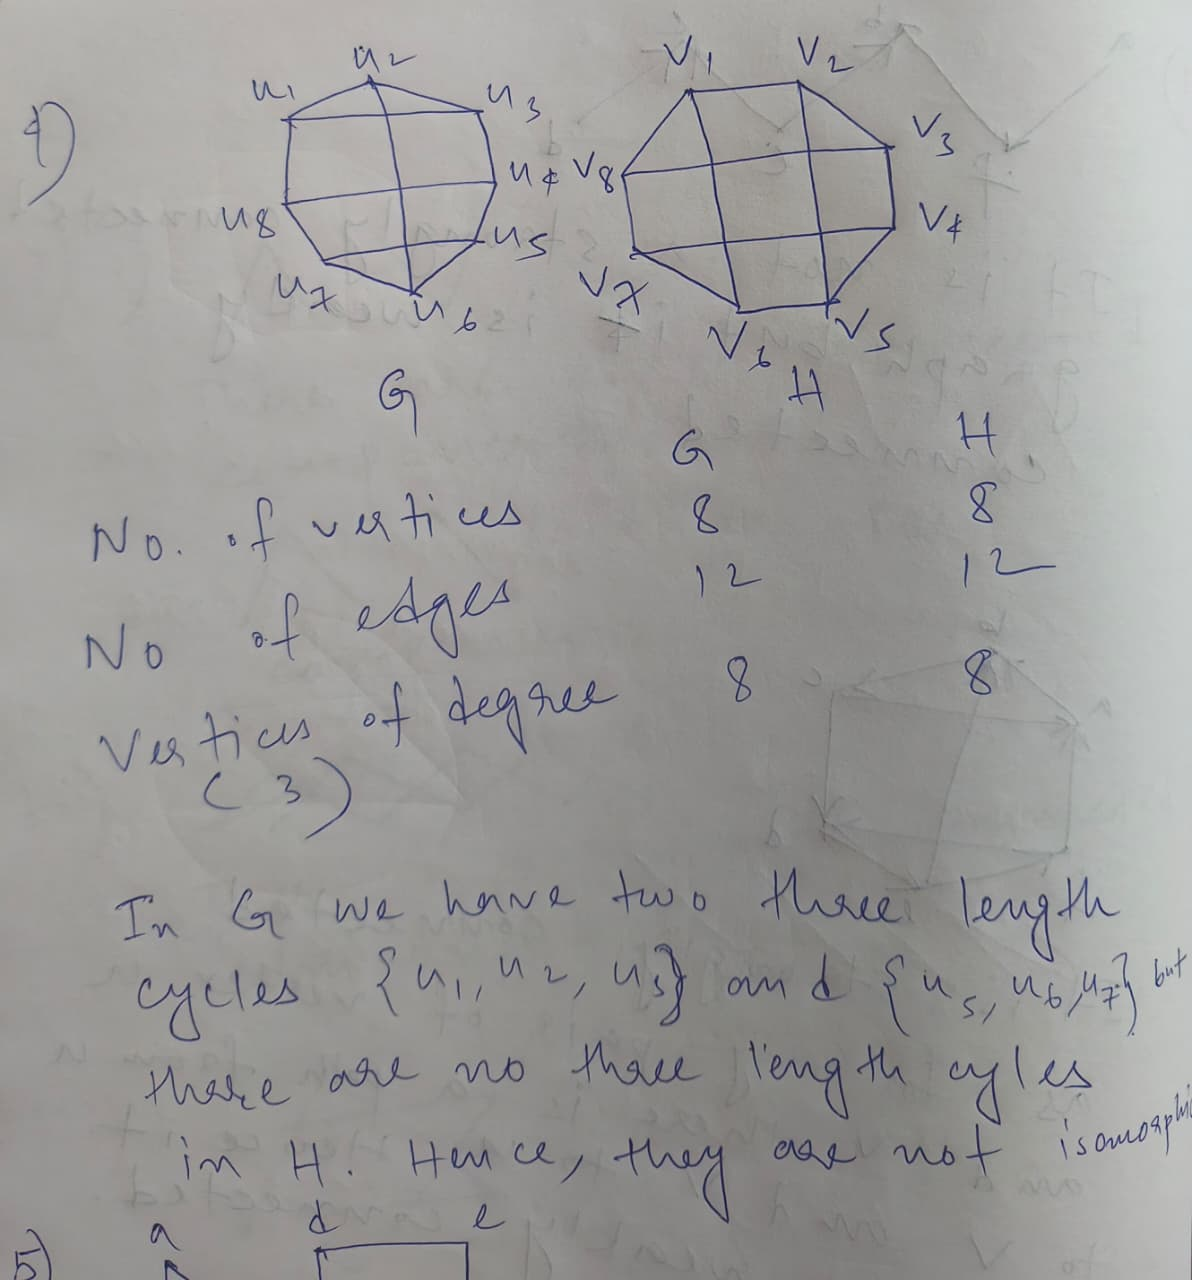 4)
u1 u2 u3
u4
u5
u6
u7
u8
G
V1 V2
V3
V4
V5
V6
V7
V8
H
G H
No. of vertices 8 8
No of edges 12 12
Vertices of degree 8 8
(3)
In G we have two three length
cycles {u1, u2, u3} and {u5, u6, u7} but
there are no three length cycles
in H. Hence, they are not isomorphic
5)
a d e